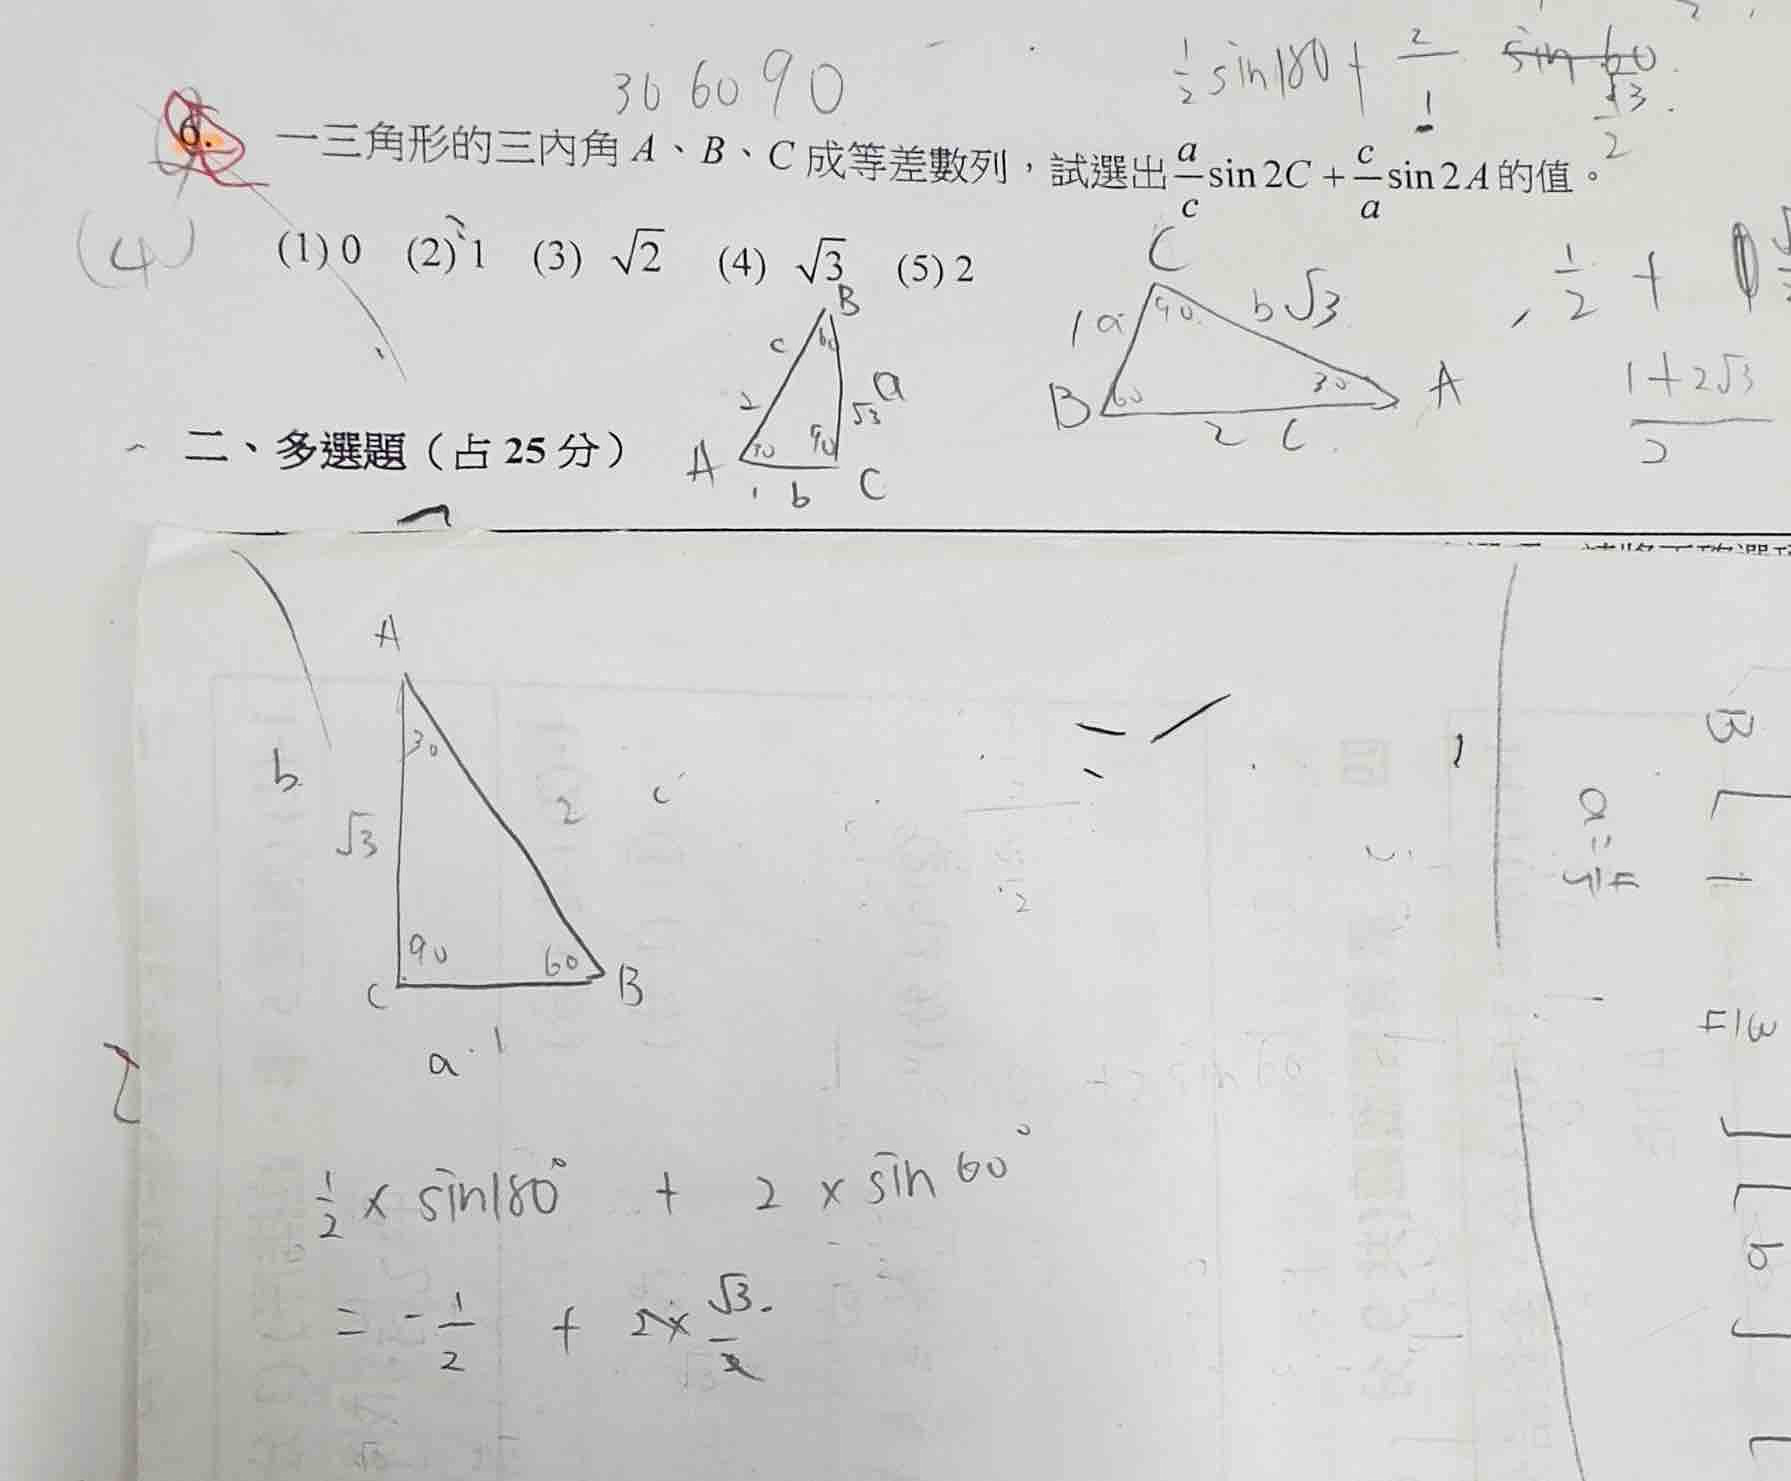 30 60 90
1/2 sin180 + 2/1 sin 60 √3/2
6. 一三角形的三內角 A、B、C 成等差數列，試選出 a/c sin 2C + c/a sin 2A 的值。
(4) (1) 0 (2) 1 (3) √2 (4) √3 (5) 2
B
60
c
2
a
√3
30
90
A
1 b
C
C
90
1 a
b √3
B
60
30
A
2 c
1/2 +
1+2√3
2
二、多選題（占 25 分）
A
30
b
√3
2
c
90
60
C
B
a 1
B
1
a=4/5
b
1/2 × sin180° + 2 × sin 60°
= -1/2 + 2× √3/2